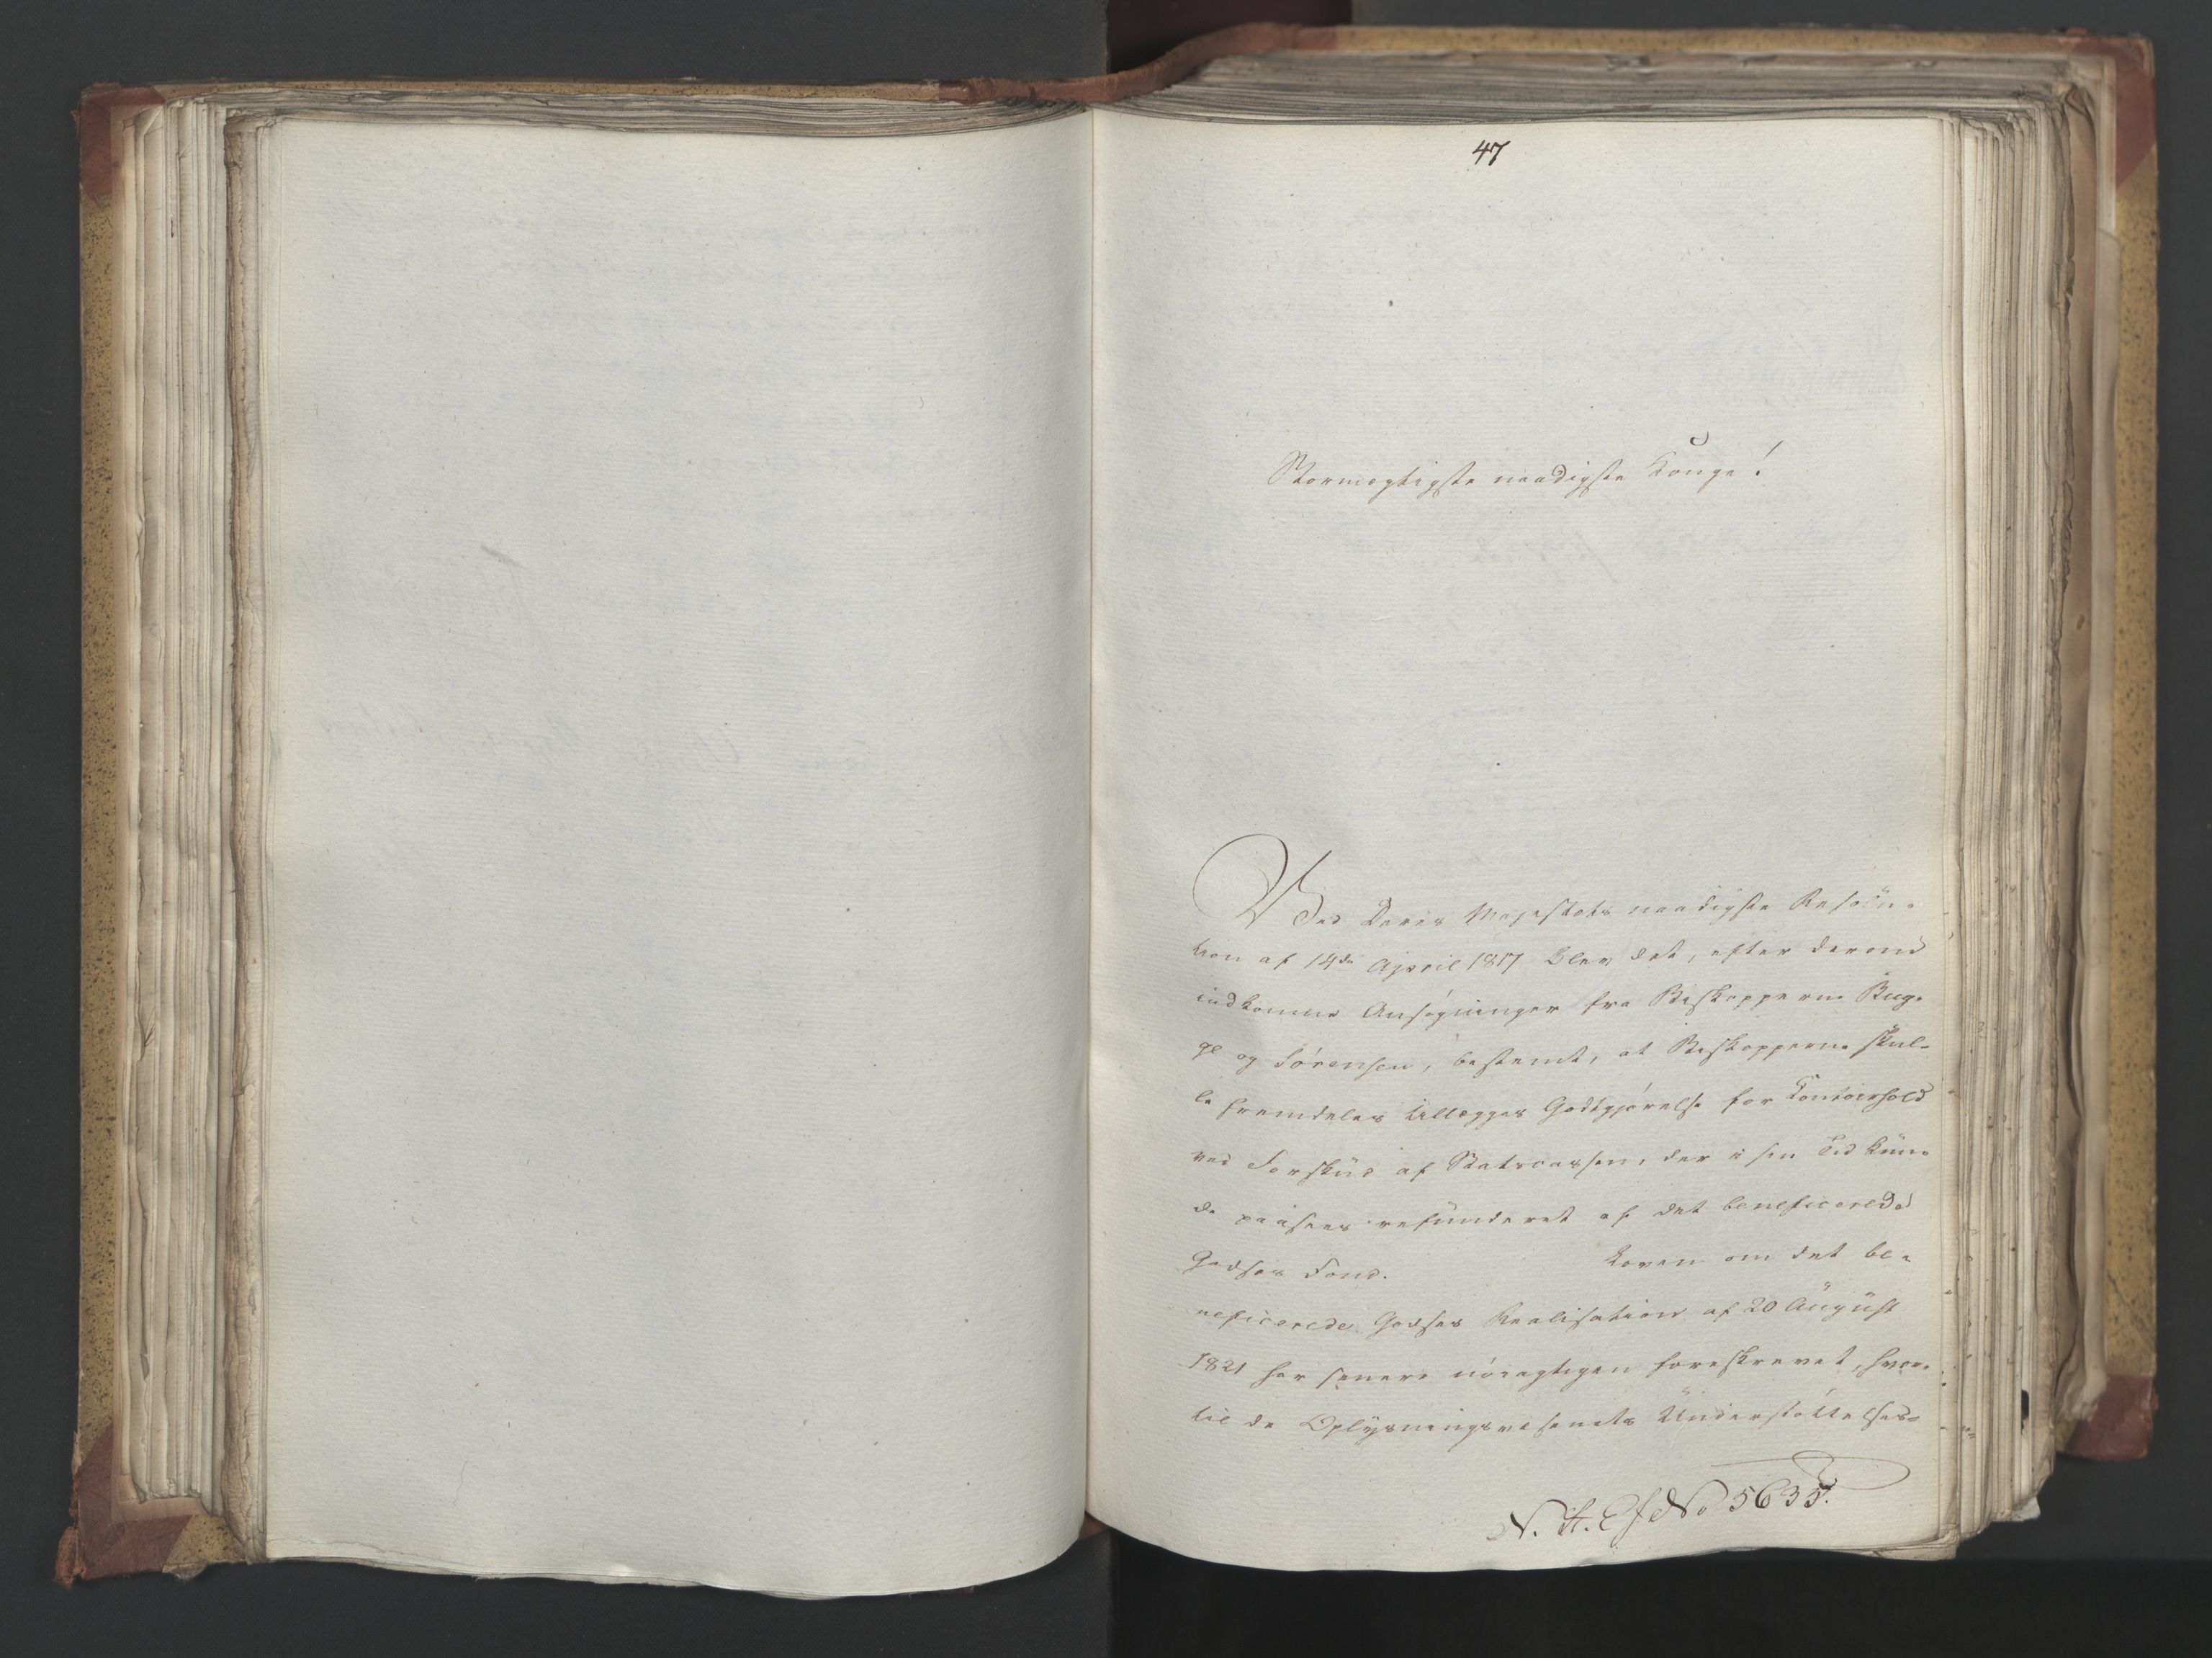 47
Stormægtigste naadigste Konge!
Ved Deres Majestæts naadigste Resolu-
tion af 14de April 1817 blev det, efter derom
indkomne Ansøgninger fra Biskopperne Bug-
ge og Sørensen, bestemt, at Biskopperne skul-
le fremdeles tillægges Godtgjørelse for Contoirhold
ved Forskud af Statscassen, der i sin Tid kun-
de paasees refunderet af det beneficerede
Godses Fond. Loven om det be-
neficerede Godses Realisation af 20 August
1821 har senere nöiagtigen foreskrevet, hvor-
til de Oplysningsvæsenets Understøttelses-
N. St. Ex No 5635.